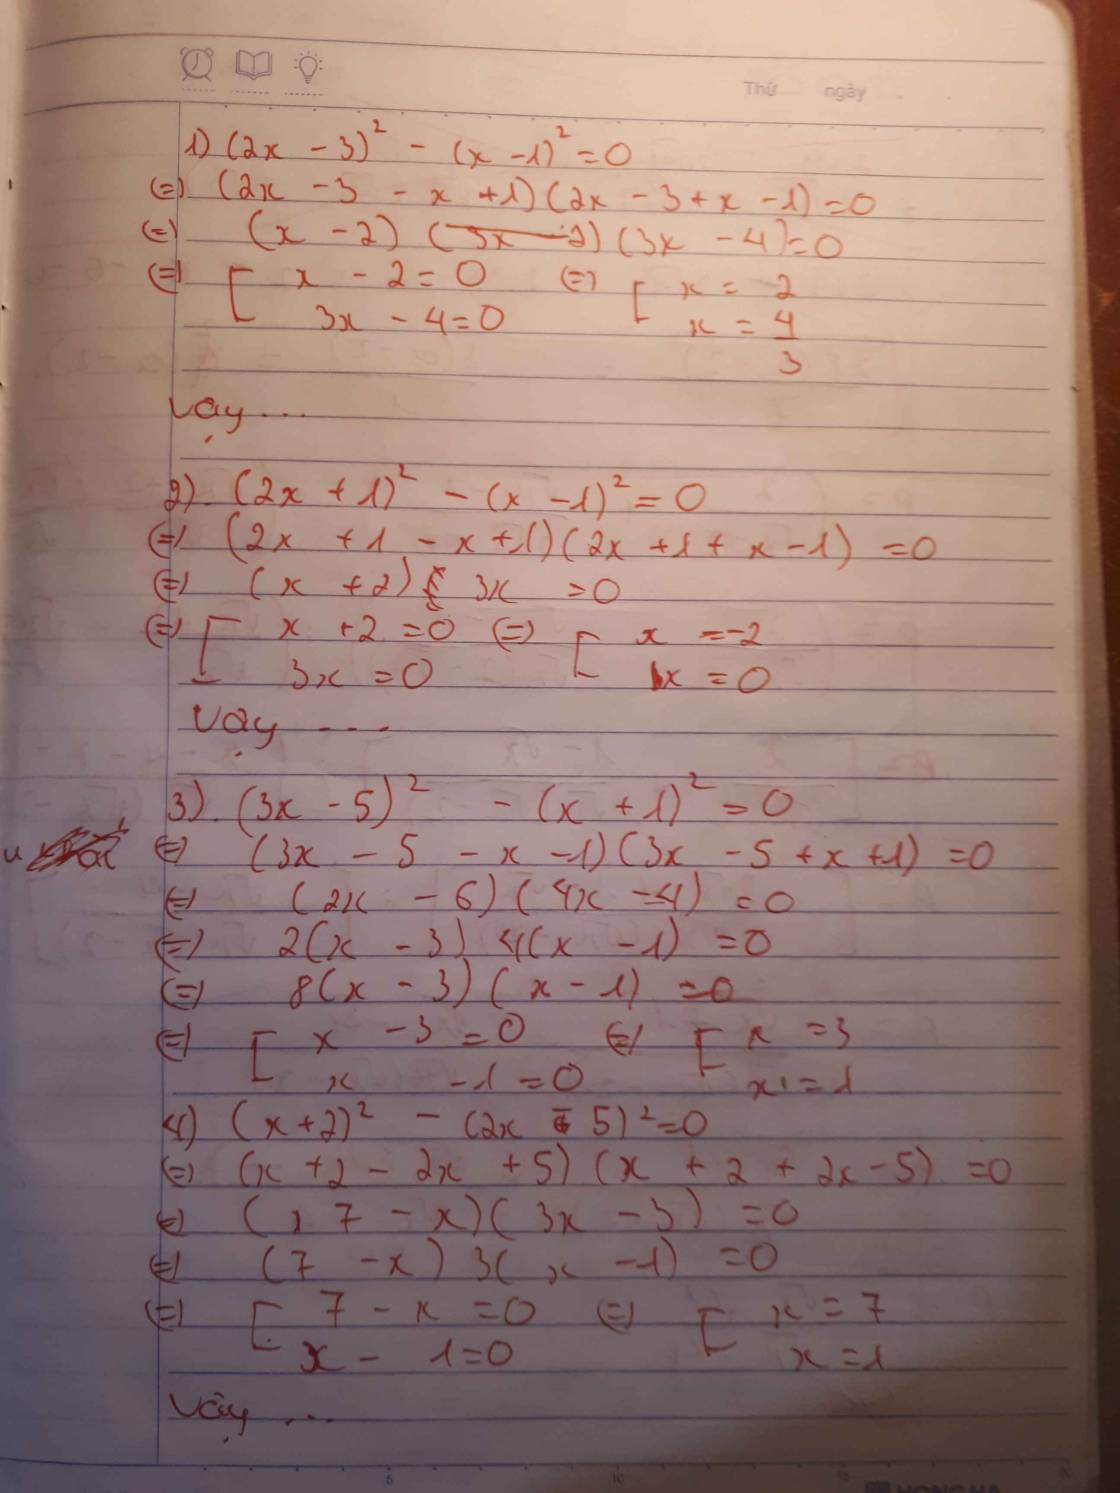 Thứ ngày
1) (2x - 3)² - (x - 1)² = 0
(=) (2x - 3 - x + 1)(2x - 3 + x - 1) = 0
(=) (x - 2) (3x - 2) (3x - 4) = 0
(=) [ x - 2 = 0 (=) [ x = 2
3x - 4 = 0 x = 4
3
Vậy ...
2). (2x + 1)² - (x - 1)² = 0
(=) (2x + 1 - x + 1)(2x + 1 + x - 1) = 0
(=) (x + 2) 3x = 0
(=) [ x + 2 = 0 (=) [ x = -2
3x = 0 x = 0
Vậy ----
3). (3x - 5)² - (x + 1)² = 0
(=) (3x - 5 - x - 1)(3x - 5 + x + 1) = 0
(=) (2x - 6)(4x - 4) = 0
(=) 2(x - 3) 4(x - 1) = 0
(=) 8(x - 3)(x - 1) = 0
(=) [ x - 3 = 0 (=) [ x = 3
x - 1 = 0 x = 1
4) (x + 2)² - (2x - 5)² = 0
(=) (x + 2 - 2x + 5)(x + 2 + 2x - 5) = 0
(=) (7 - x)(3x - 3) = 0
(=) (7 - x) 3(x - 1) = 0
(=) [ 7 - x = 0 (=) [ x = 7
x - 1 = 0 x = 1
Vậy ...